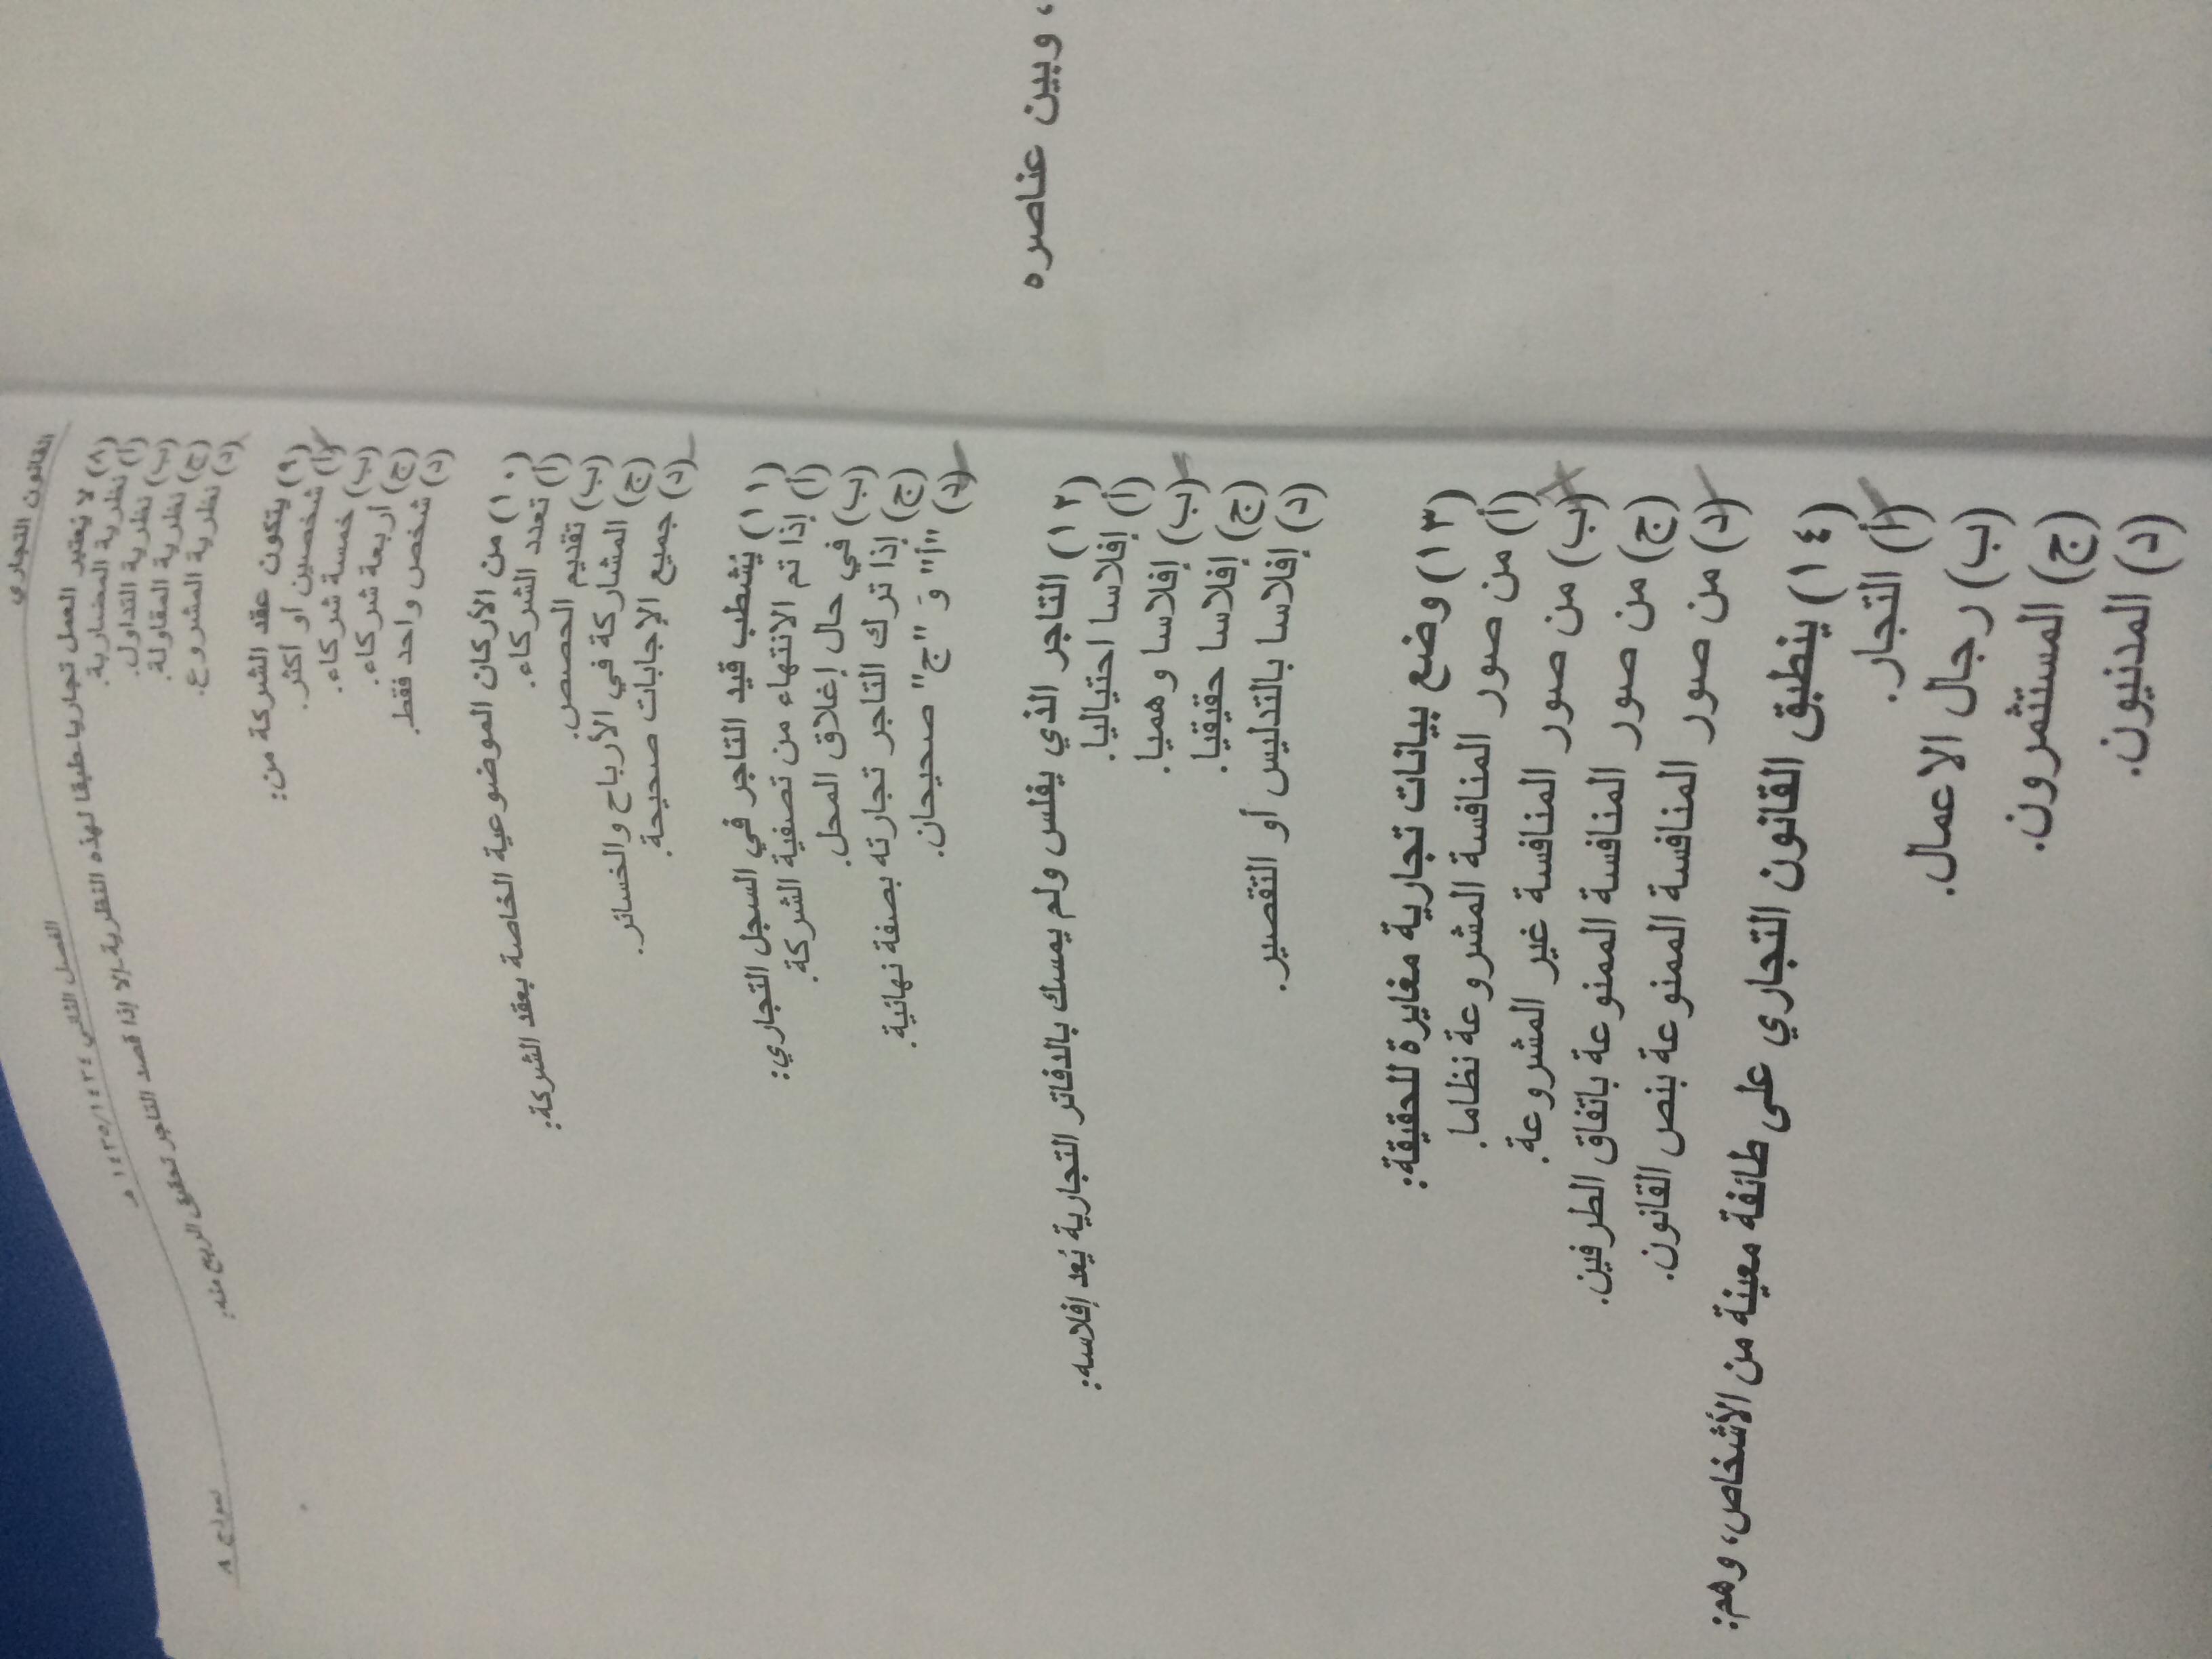 القانون التجاري
الفصل الثاني ١٤٣٥/١٤٣٤ هـ
نموذج ٨
٨) لا يُعتبر العمل تجاريا طبقا لهذه النظرية إلا إذا قصد التاجر تحقيق الربح منه:
أ) نظرية المضاربة.
ب) نظرية التداول.
ج) نظرية المقاولة.
د) نظرية المشروع.
٩) يتكون عقد الشركة من:
أ) شخصين أو أكثر.
ب) خمسة شركاء.
ج) أربعة شركاء.
د) شخص واحد فقط.
١٠) من الأركان الموضوعية الخاصة بعقد الشركة:
أ) تعدد الشركاء.
ب) تقديم الحصص.
ج) المشاركة في الأرباح والخسائر.
د) جميع الإجابات صحيحة.
١١) يُشطب قيد التاجر في السجل التجاري:
أ) إذا تم الانتهاء من تصفية الشركة.
ب) في حال إغلاق المحل.
ج) إذا ترك التاجر تجارته بصفة نهائية.
د) "أ" وَ "ج" صحيحان.
١٢) التاجر الذي يفلس ولم يمسك بالدفاتر التجارية يُعد إفلاسه:
أ) إفلاسا احتياليا.
ب) إفلاسا وهميا.
ج) إفلاسا حقيقيا.
د) إفلاسا بالتدليس أو التقصير.
١٣) وضع بيانات تجارية مغايرة للحقيقة:
أ) من صور المنافسة المشروعة نظاما.
ب) من صور المنافسة غير المشروعة.
ج) من صور المنافسة الممنوعة باتفاق الطرفين.
د) من صور المنافسة الممنوعة بنص القانون.
١٤) ينطبق القانون التجاري على طائفة معينة من الأشخاص، وهم:
أ) التجار.
ب) رجال الاعمال.
ج) المستثمرون.
د) المدنيون.
، وبين عناصره